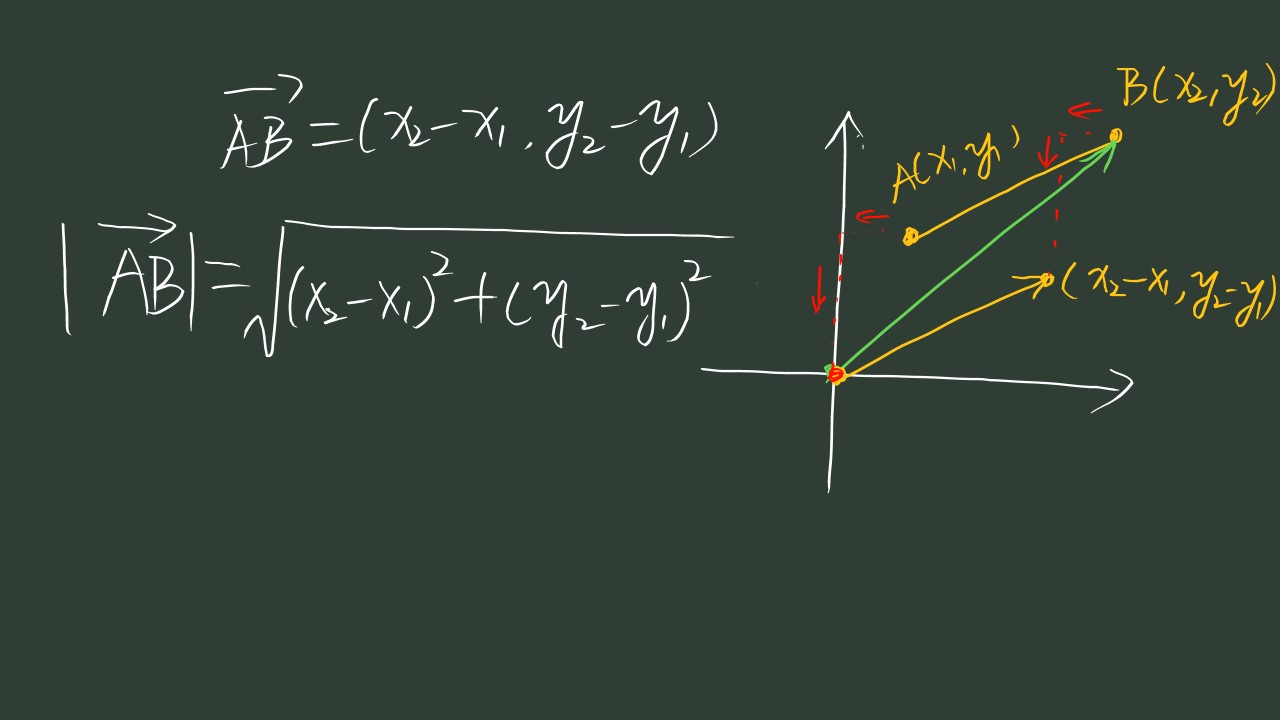 $\overrightarrow{AB}=(x_2-x_1,y_2-y_1)$
$|\overrightarrow{AB}|=\sqrt{(x_2-x_1)^2+(y_2-y_1)^2}$
B(x₂,y₂)
A(x₁,y₁)
(x₂-x₁,y₂-y₁)